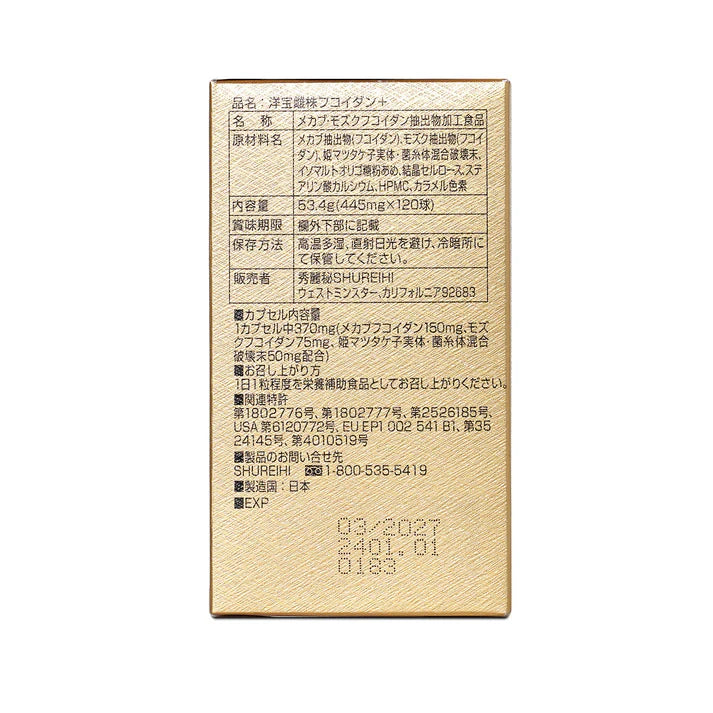 品名：洋宝雌株フコイダン＋
名　称　メカブ・モズクフコイダン抽出物加工食品
原材料名　メカブ抽出物(フコイダン)、モズク抽出物(フコイ
ダン)、姫マツタケ子実体・菌糸体混合破壊末、
イソマルトオリゴ糖粉あめ、結晶セルロース、ステ
アリン酸カルシウム、HPMC、カラメル色素
内容量　53.4g(445mg×120球)
賞味期限　欄外下部に記載
保存方法　高温多湿、直射日光を避け、冷暗所に
て保管してください。
販売者　秀麗秘SHUREIHI
ウェストミンスター、カリフォルニア92683
■カプセル内容量
1カプセル中370mg(メカブフコイダン150mg、モズ
クフコイダン75mg、姫マツタケ子実体・菌糸体混合
破壊末50mg配合)
■お召し上がり方
1日1粒程度を栄養補助食品としてお召し上がりください。
■関連特許
第1802776号、第1802777号、第2526185号、
USA 第6120772号、EU EP1 002 541 B1、第35
24145号、第4010519号
■製品のお問い合せ先
SHUREIHI 1-800-535-5419
■製造国：日本
■EXP
03/2027
2401.01
0183